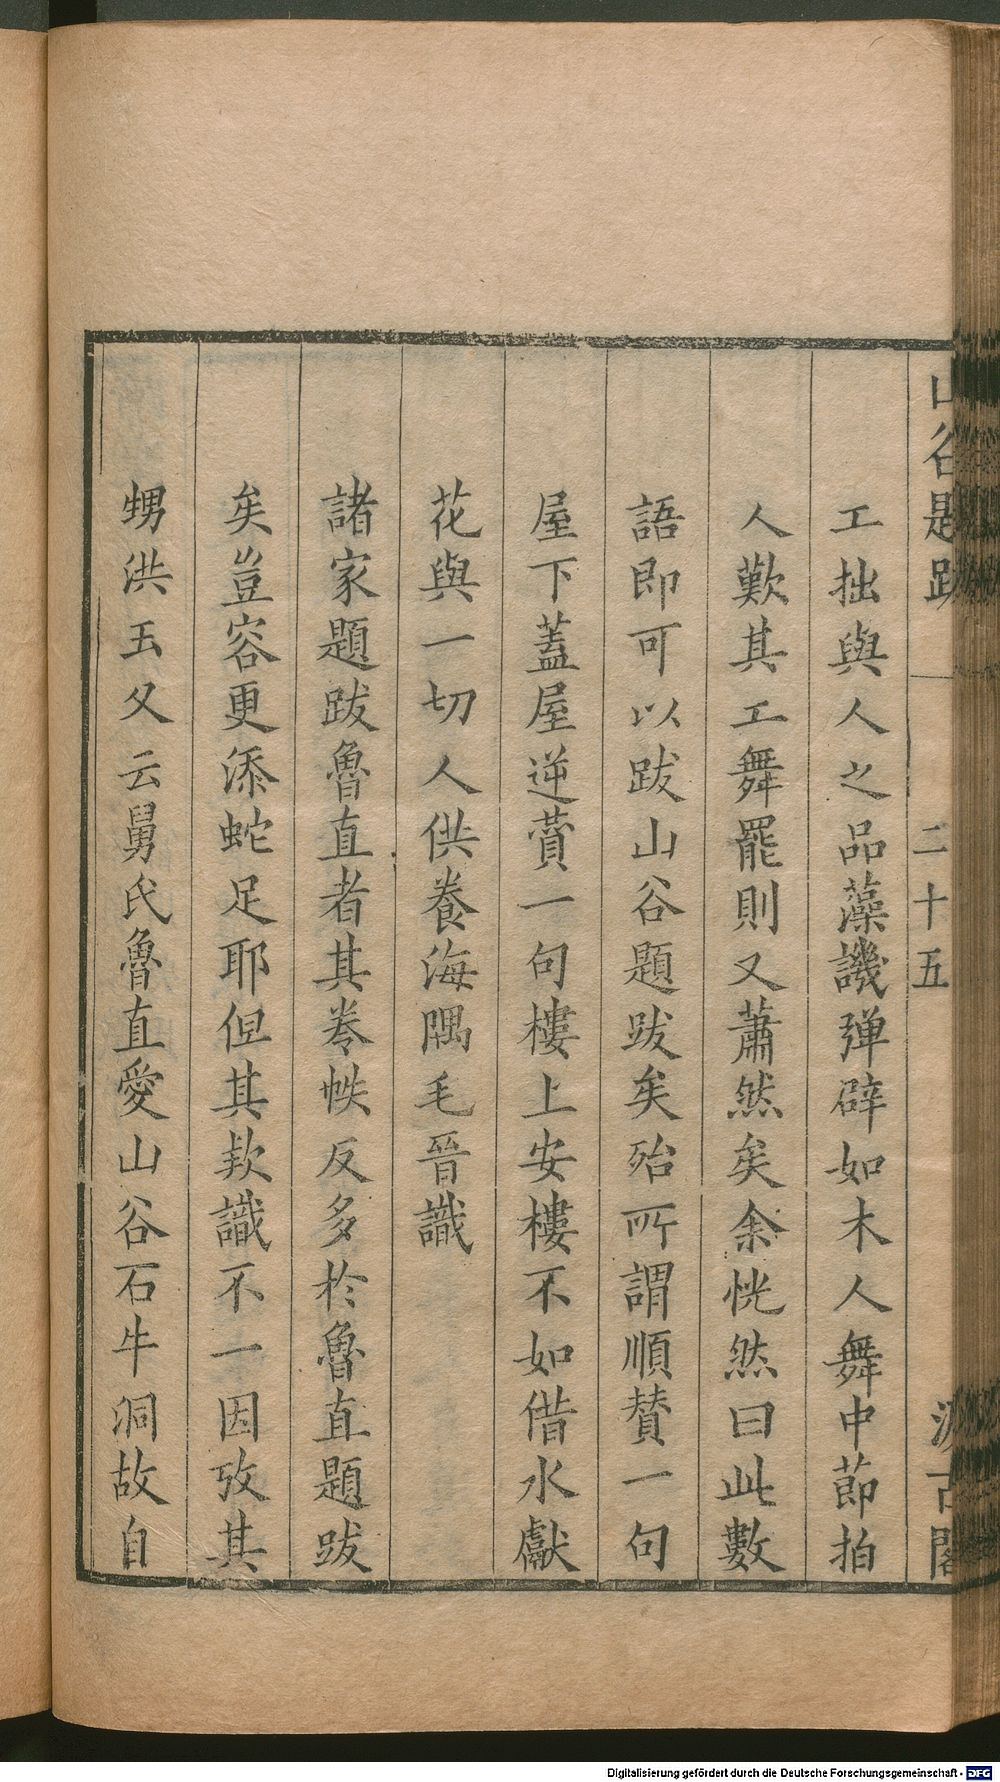 山谷題跋 二十五 汲古閣
工拙與人之品藻譏彈辟如木人舞中節拍
人歎其工舞罷則又蕭然矣余恍然曰此數
語即可以跋山谷題跋矣殆所謂順贊一句
屋下蓋屋逆賛一句樓上安樓不如借水獻
花與一切人供養海隅毛晉識
諸家題跋魯直者其卷帙反多於魯直題跋
矣豈容更添蛇足耶但其欵識不一因攷其
甥洪玉父云舅氏魯直愛山谷石牛洞故自
Digitalisierung gefördert durch die Deutsche Forschungsgemeinschaft - DFG